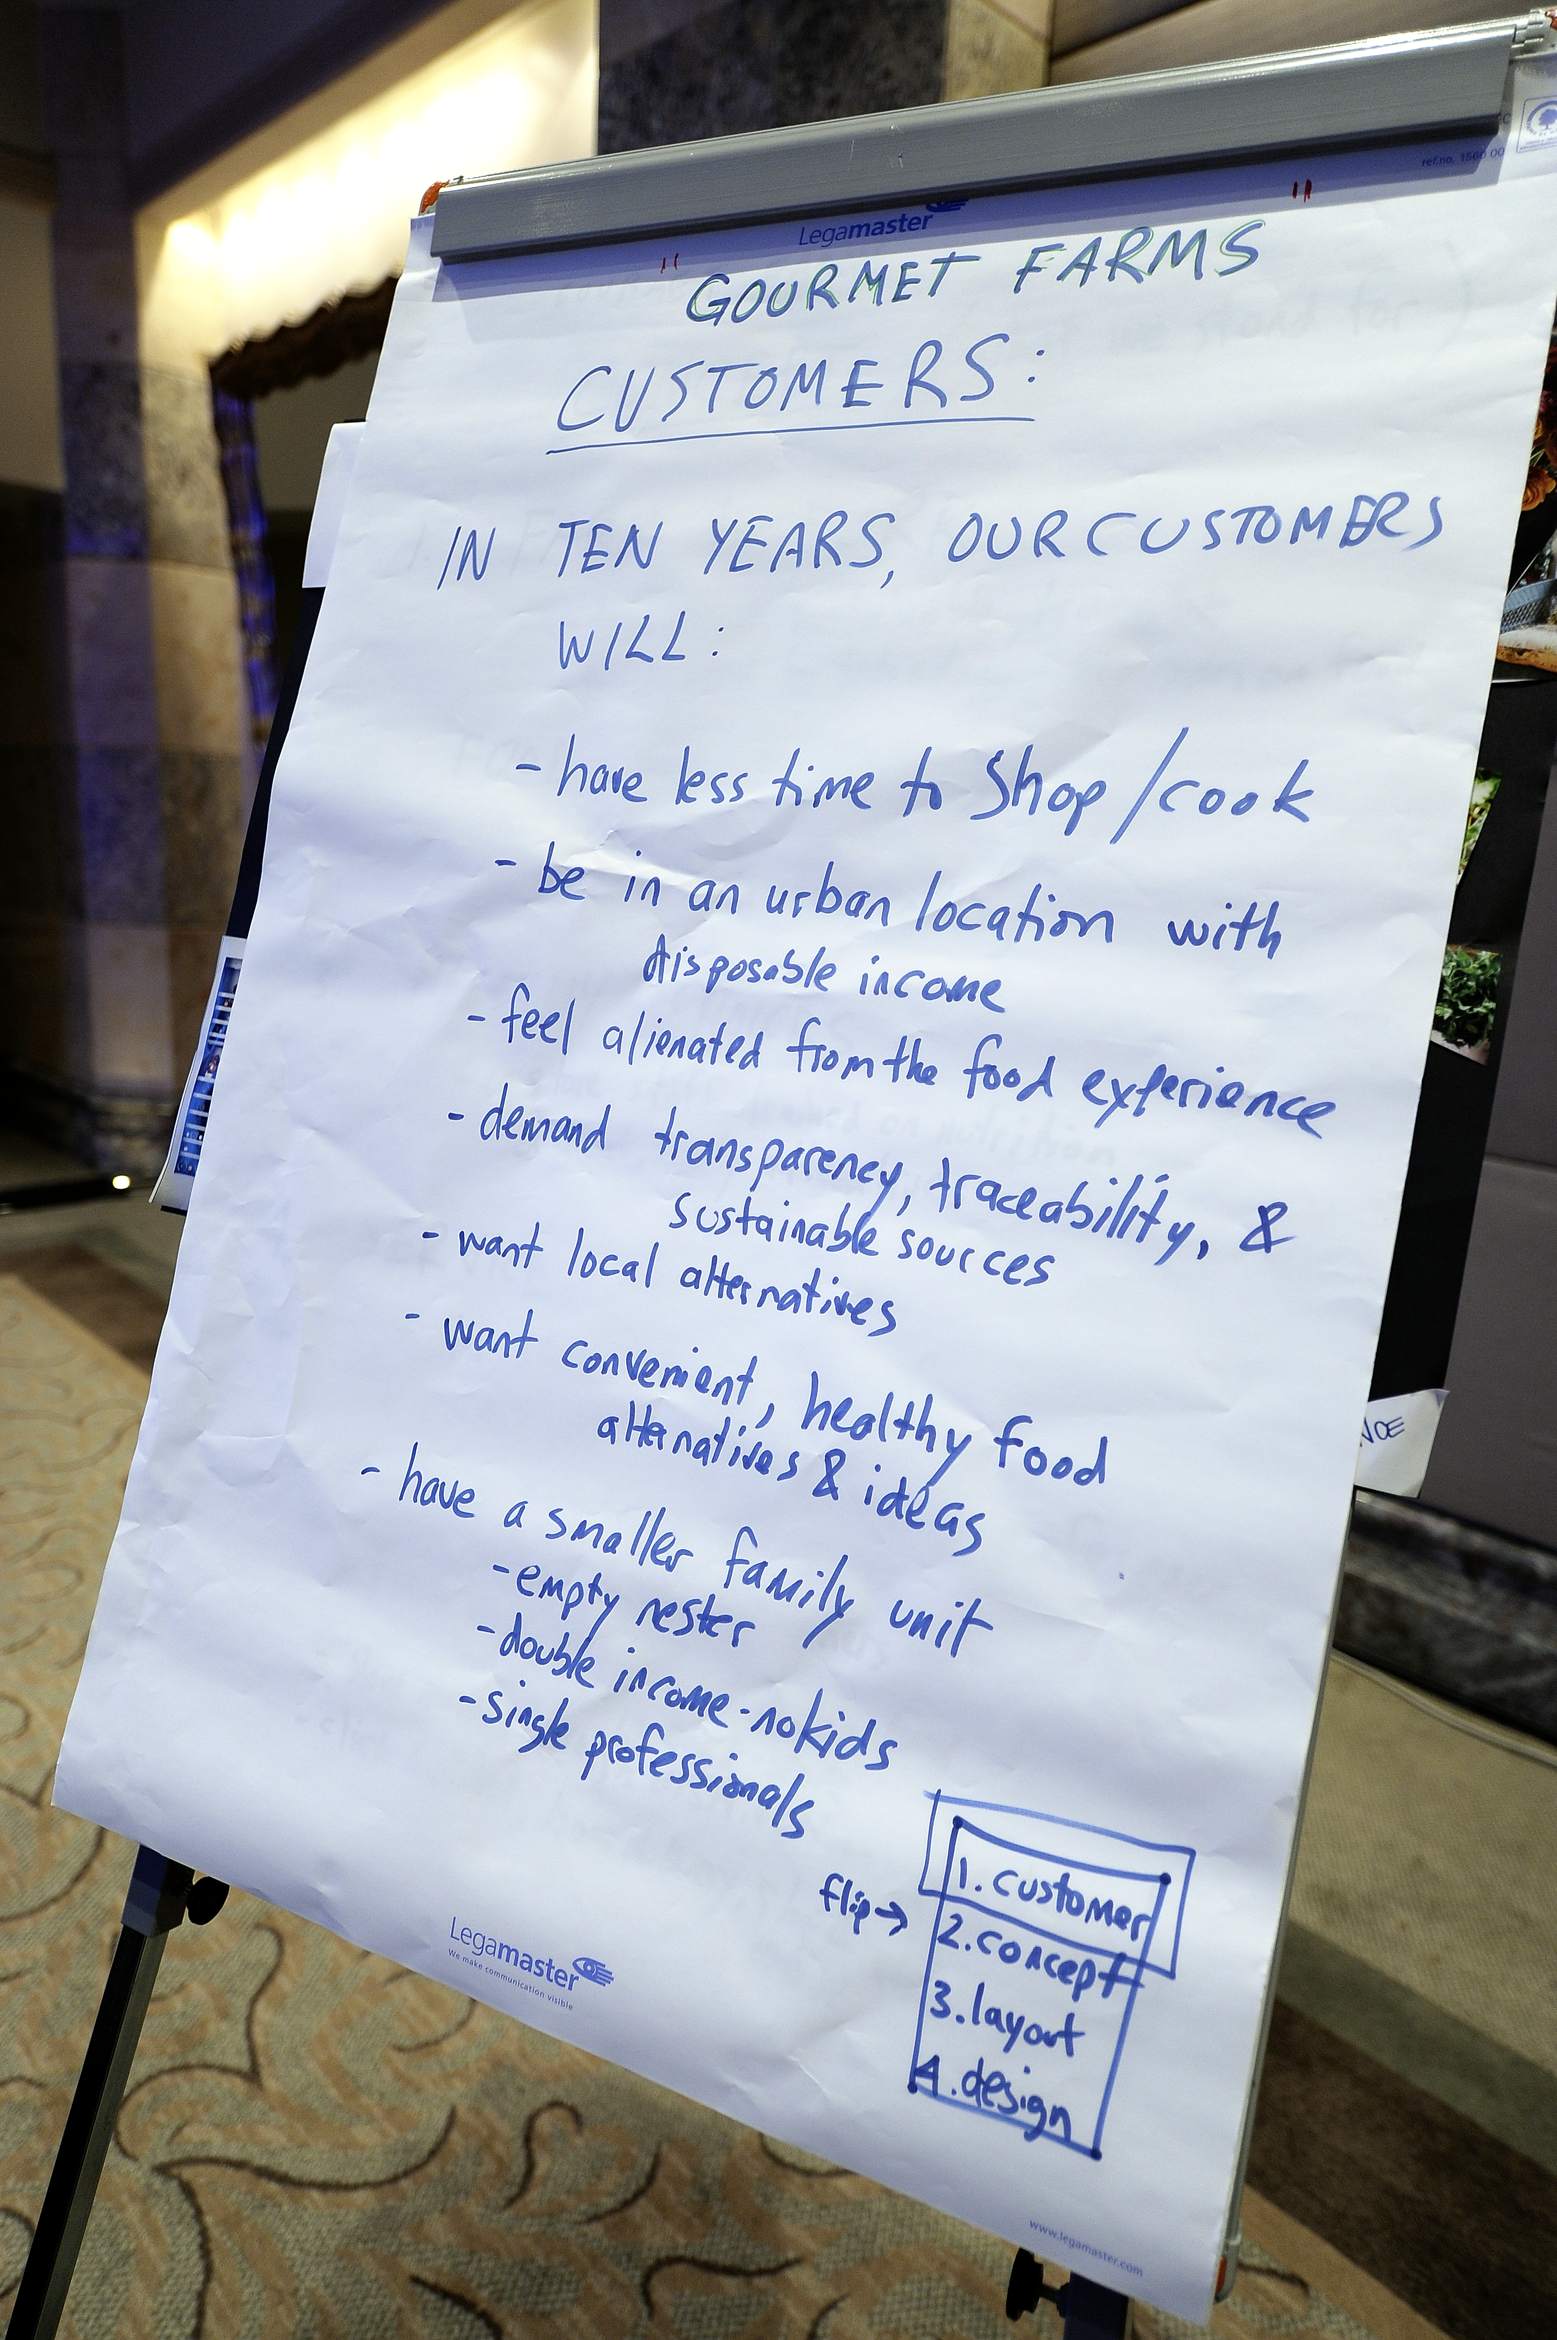 ref.no. 1560 00
Legamaster
" GOURMET FARMS "
CUSTOMERS:
IN TEN YEARS, OUR CUSTOMERS
WILL:
- have less time to Shop/cook
- be in an urban location with
disposable income
- feel alienated from the food experience
- demand transparency, traceability, &
sustainable sources
- want local alternatives
- want convenient, healthy food
alternatives & ideas
- have a smaller family unit
- empty nester
- double income - no kids
- single professionals
flip →
1. customer
2. concept
3. layout
4. design
Legamaster
We make communication visible
www.legamaster.com